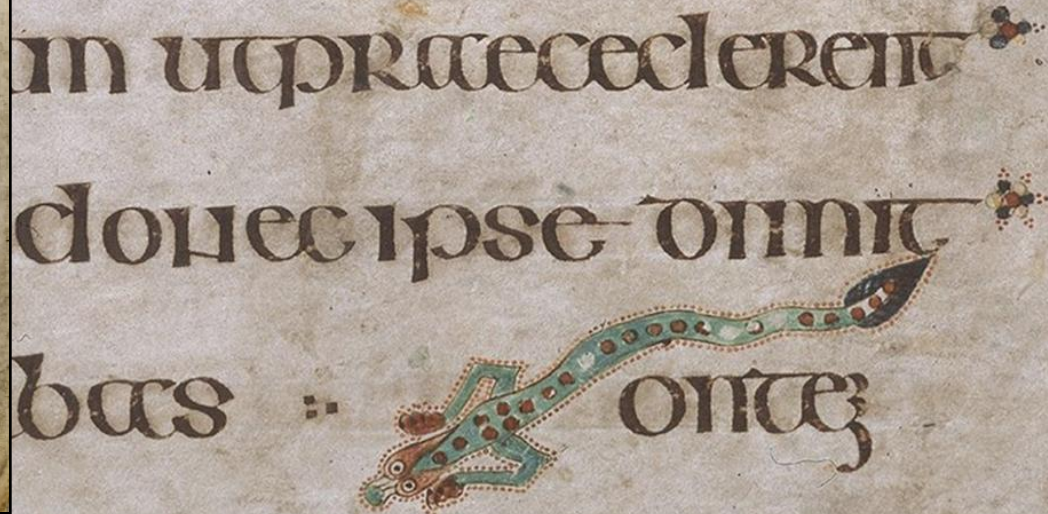 am utpraecederent
donec ipse dimit
bas ontem